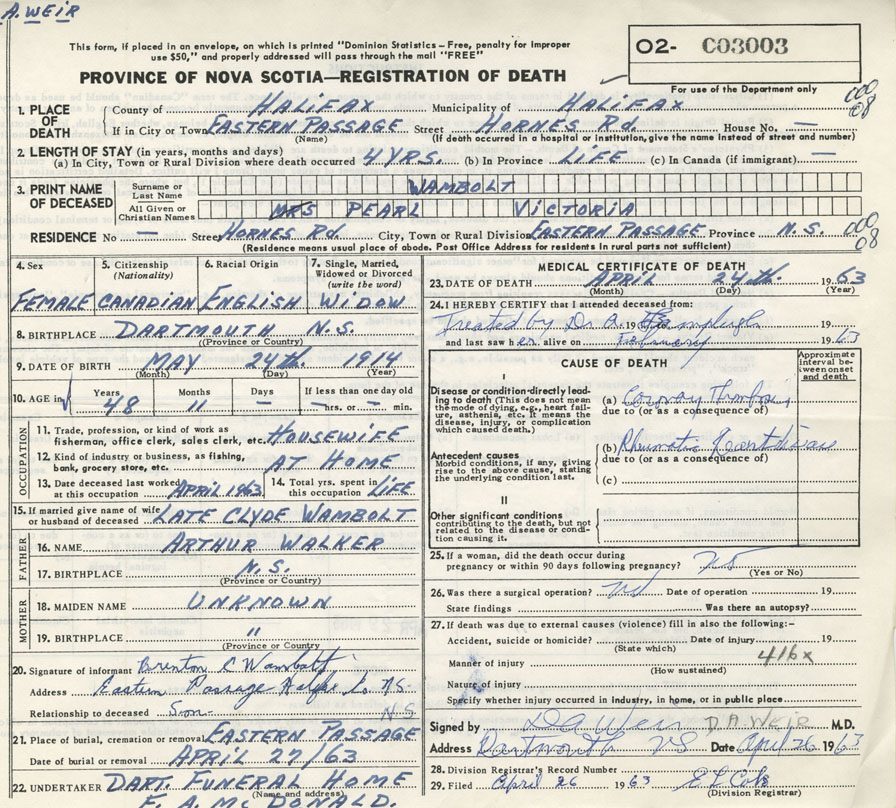 A. WEIR
This form, if placed in an envelope, on which is printed "Dominion Statistics – Free, penalty for Improper
use $50," and properly addressed will pass through the mail "FREE"
02- C03003
PROVINCE OF NOVA SCOTIA—REGISTRATION OF DEATH
For use of the Department only
1. PLACE OF DEATH County of HALIFAX Municipality of HALIFAX 000
08
If in City or Town EASTERN PASSAGE Street HORNES Rd House No. —
(Name) (If death occurred in a hospital or institution, give the name instead of street and number)
2. LENGTH OF STAY (in years, months and days)
(a) In City, Town or Rural Division where death occurred 4 YRS. (b) In Province LIFE (c) In Canada (if immigrant) —
3. PRINT NAME OF DECEASED Surname or Last Name WAMBOLT
All Given or Christian Names MRS PEARL VICTORIA
RESIDENCE No — Street HORNES Rd. City, Town or Rural Division EASTERN PASSAGE Province N.S. 000
08
(Residence means usual place of abode. Post Office Address for residents in rural parts not sufficient)
4. Sex 5. Citizenship (Nationality) 6. Racial Origin 7. Single, Married, Widowed or Divorced (write the word)
FEMALE CANADIAN ENGLISH WIDOW
8. BIRTHPLACE DARTMOUTH N.S.
(Province or Country)
9. DATE OF BIRTH MAY 24th. 1914
(Month) (Day) (Year)
10. AGE in Years Months Days If less than one day old
48 11 — — hrs. or — min.
OCCUPATION
11. Trade, profession, or kind of work as fisherman, office clerk, sales clerk, etc. HOUSEWIFE
12. Kind of industry or business, as fishing, bank, grocery store, etc. AT HOME
13. Date deceased last worked at this occupation APRIL 1963 14. Total yrs. spent in this occupation LIFE
15. If married give name of wife or husband of deceased LATE CLYDE WAMBOLT
FATHER
16. NAME ARTHUR WALKER
17. BIRTHPLACE N.S.
(Province or Country)
MOTHER
18. MAIDEN NAME UNKNOWN
19. BIRTHPLACE "
(Province or Country)
20. Signature of informant Brenton C Wambolt
Address Eastern Passage Halifax Co N.S.
Relationship to deceased Son- N S
21. Place of burial, cremation or removal EASTERN PASSAGE
Date of burial or removal APRIL 27/63
22. UNDERTAKER DART. FUNERAL HOME
(Name and address)
F. A. McDONALD.
MEDICAL CERTIFICATE OF DEATH
23. DATE OF DEATH APRIL 24th. 1963
(Month) (Day) (Year)
24. I HEREBY CERTIFY that I attended deceased from:
Treated by Dr 19 19
and last saw her alive on February 1963
CAUSE OF DEATH
Approximate interval between onset and death
I
Disease or condition directly leading to death (This does not mean the mode of dying, e.g., heart failure, asthenia, etc. It means the disease, injury, or complication which caused death.)
(a) Coronary Thrombosis
due to (or as a consequence of)
Antecedent causes
Morbid conditions, if any, giving rise to the above cause, stating the underlying condition last.
(b) Rheumatic Heart disease
due to (or as a consequence of)
(c)
II
Other significant conditions
contributing to the death, but not related to the disease or condition causing it.
25. If a woman, did the death occur during
pregnancy or within 90 days following pregnancy? no
(Yes or No)
26. Was there a surgical operation? no Date of operation 19
State findings Was there an autopsy?
27. If death was due to external causes (violence) fill in also the following:–
Accident, suicide or homicide? Date of injury 19
(State which)
416x
Manner of injury
(How sustained)
Nature of injury
Specify whether injury occurred in Industry, in home, or in public place
Signed by D A Weir D. A. WEIR M.D.
Address Dartmouth NS Date April 26 1963
28. Division Registrar's Record Number
29. Filed April 26 1963
(Division Registrar)